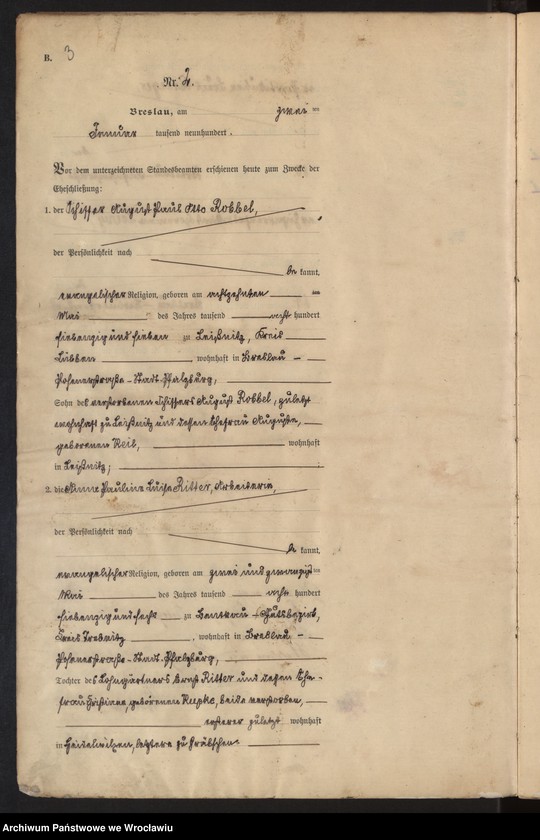 B. 3
Nr. 2.
Breslau, am zwei ten
Januar tausend neunhundert .
Vor dem unterzeichneten Standesbeamten erschienen heute zum Zwecke der
Eheschließung:
1. der Schiffer August Paul Otto Robbel,
der Persönlichkeit nach
be kannt,
evangelischer Religion, geboren am achtzehnten ten
Mai des Jahres tausend acht hundert
siebenzig und sieben zu Leißnitz, Kreis
Lübben wohnhaft in Breslau –
Posenerstraße – Stadt Pfalzburg,
Sohn des verstorbenen Schiffers August Robbel, zuletzt
wohnhaft zu Leißnitz und dessen Ehefrau Auguste,
geborenen Keil, wohnhaft
in Leißnitz;
2. die Anna Pauline Luise Ritter, Arbeiterin,
der Persönlichkeit nach
be kannt,
evangelischer Religion, geboren am zwei und zwanzigsten
Mai des Jahres tausend acht hundert
siebenzig und sechs zu Bentkau – Gutsbezirk,
Kreis Trebnitz, wohnhaft in Breslau –
Posenerstraße – Stadt Pfalzburg,
Tochter des Lohngärtners Ernst Ritter und dessen Ehe-
frau geborenen beide verstorben,
ersterer zuletzt wohnhaft
in Heidewilxen, letztere zu
Archiwum Państwowe we Wrocławiu